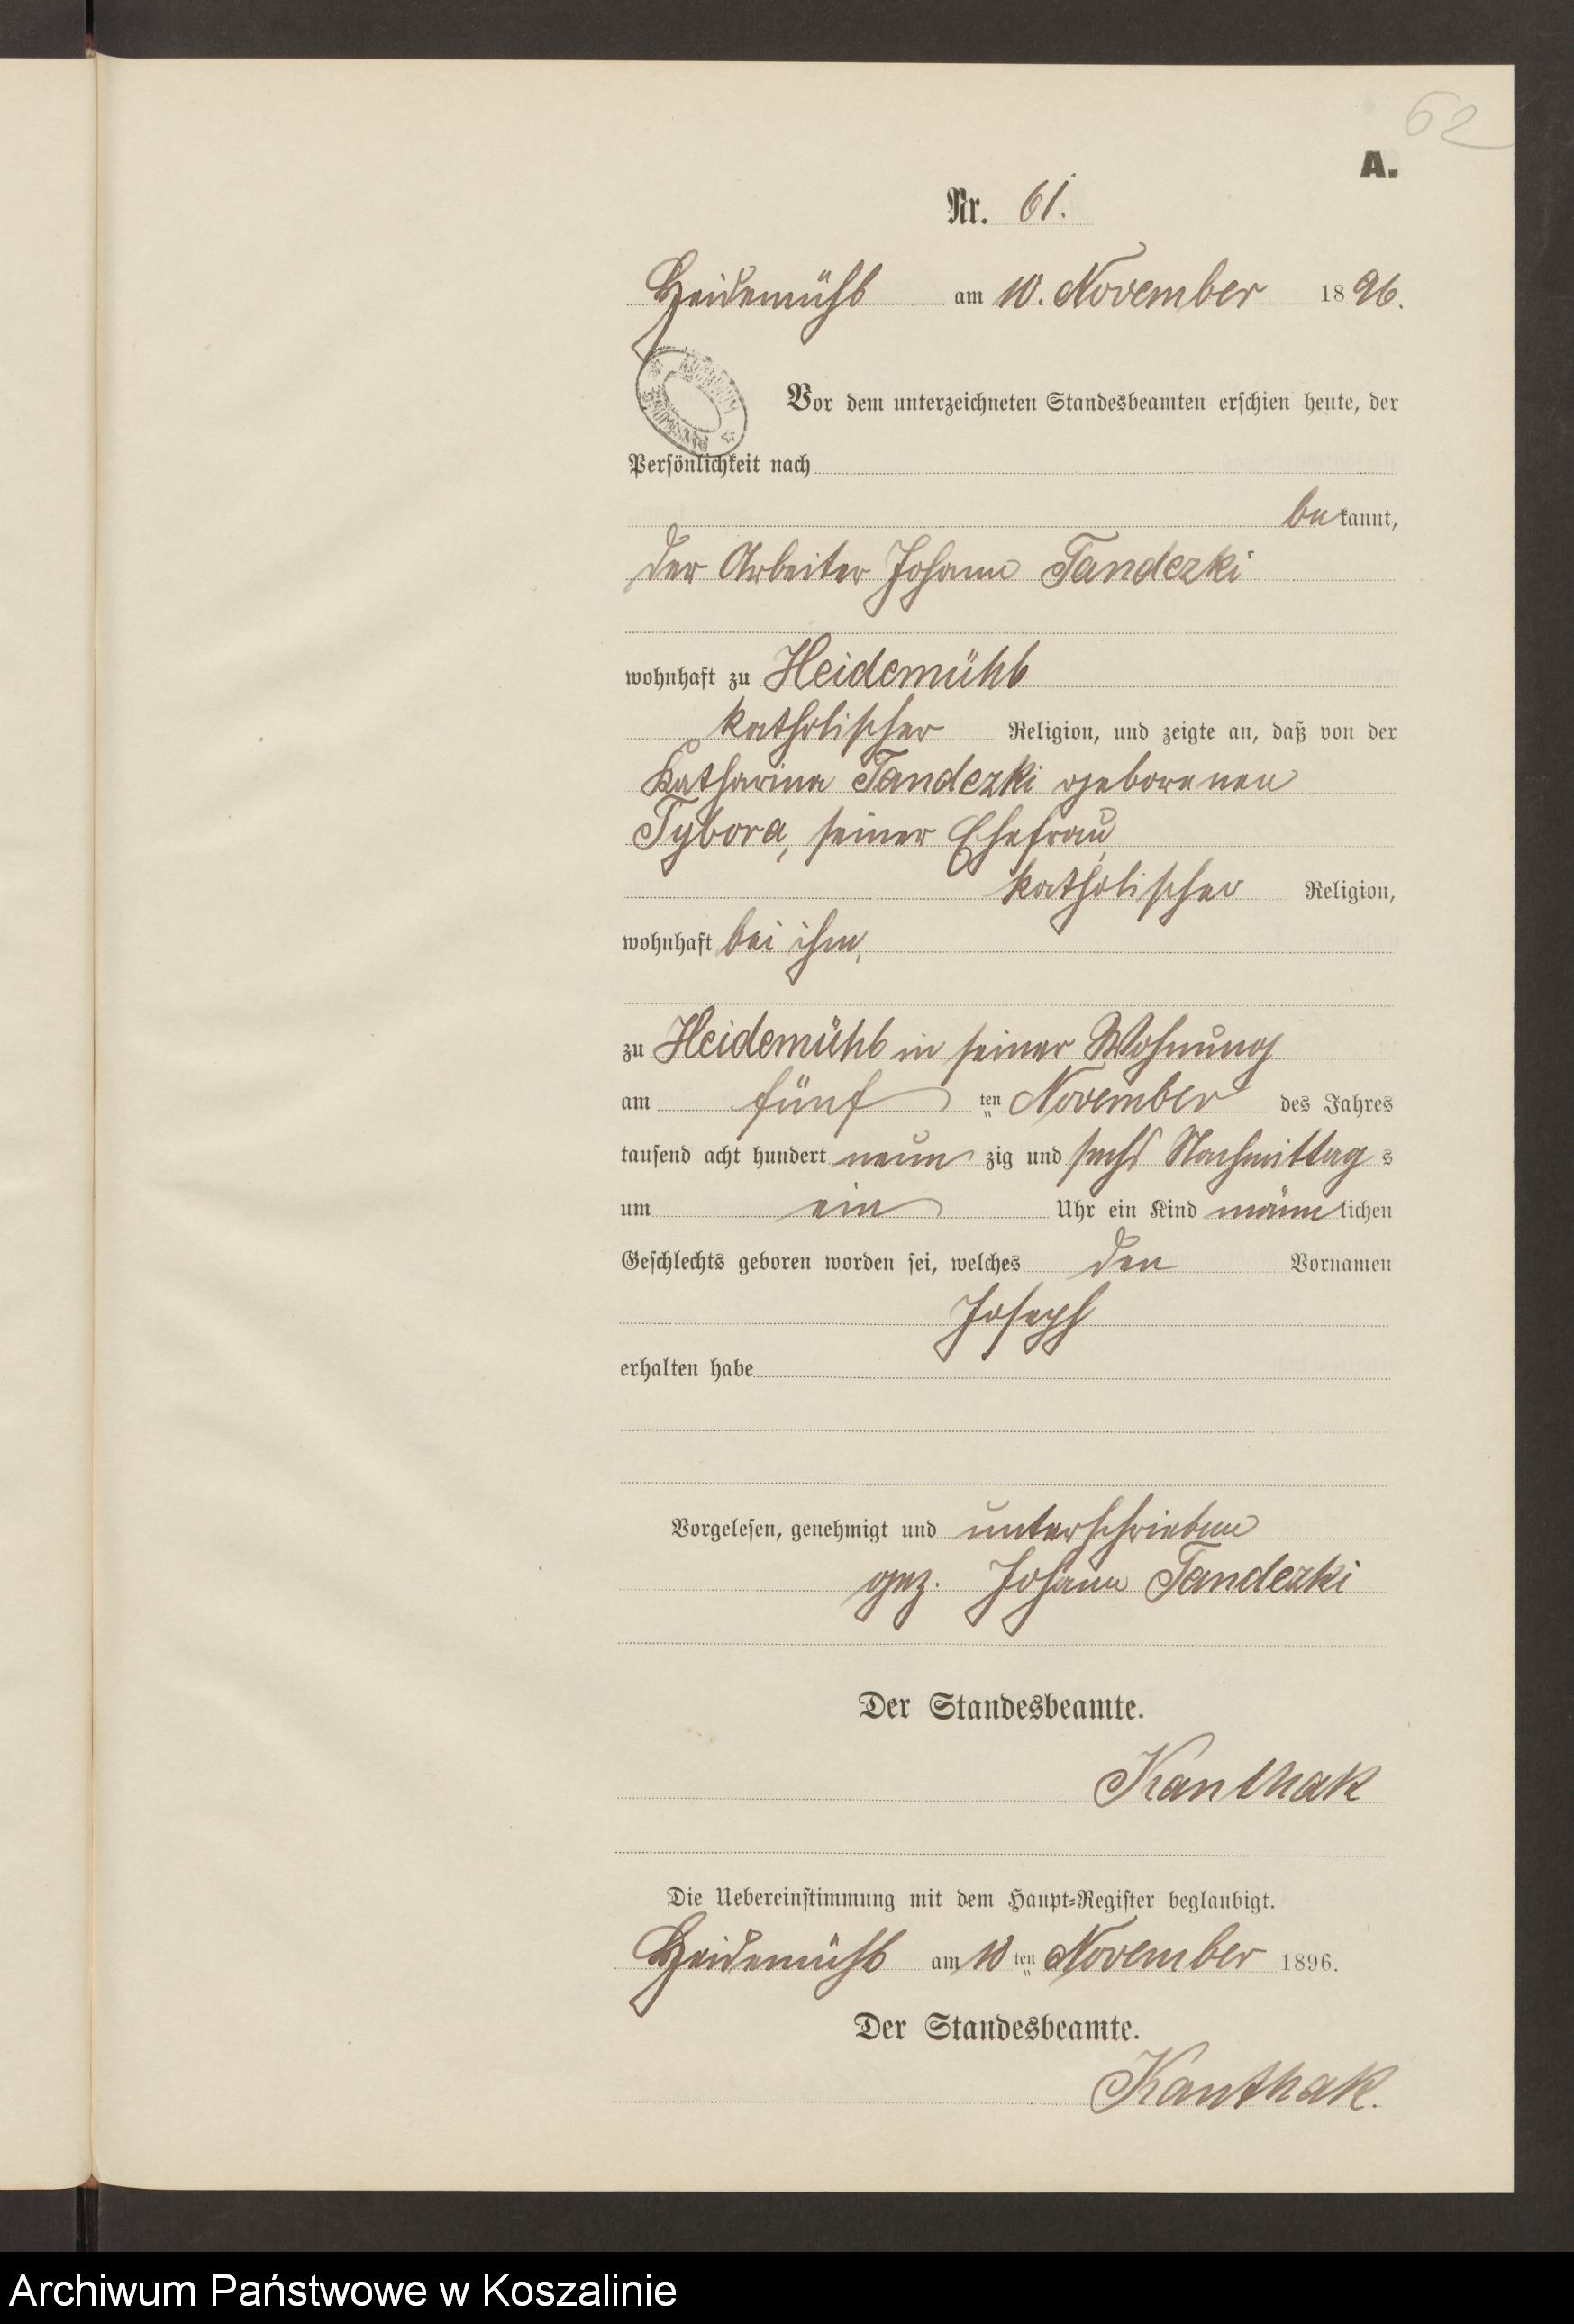 62
A.
Nr. 61.
Heidemühl am 10. November 1896.
Vor dem unterzeichneten Standesbeamten erschien heute, der
Persönlichkeit nach
bekannt,
der Arbeiter Johann Tandezki
wohnhaft zu Heidemühl
katholischer Religion, und zeigte an, daß von der
Katharina Tandezki geborenen
Tybora, seiner Ehefrau,
katholischer Religion,
wohnhaft bei ihm,
zu Heidemühl in seiner Wohnung
am fünf ten November des Jahres
tausend acht hundert neun zig und sechs Nachmittag s
um ein Uhr ein Kind männlichen
Geschlechts geboren worden sei, welches den Vornamen
Joseph
erhalten habe
Vorgelesen, genehmigt und unterschrieben
gez. Johann Tandezki
Der Standesbeamte.
Kanthak
Die Uebereinstimmung mit dem Haupt-Register beglaubigt.
Heidemühl am 10 ten November 1896.
Der Standesbeamte.
Kanthak.
Archiwum Państwowe w Koszalinie